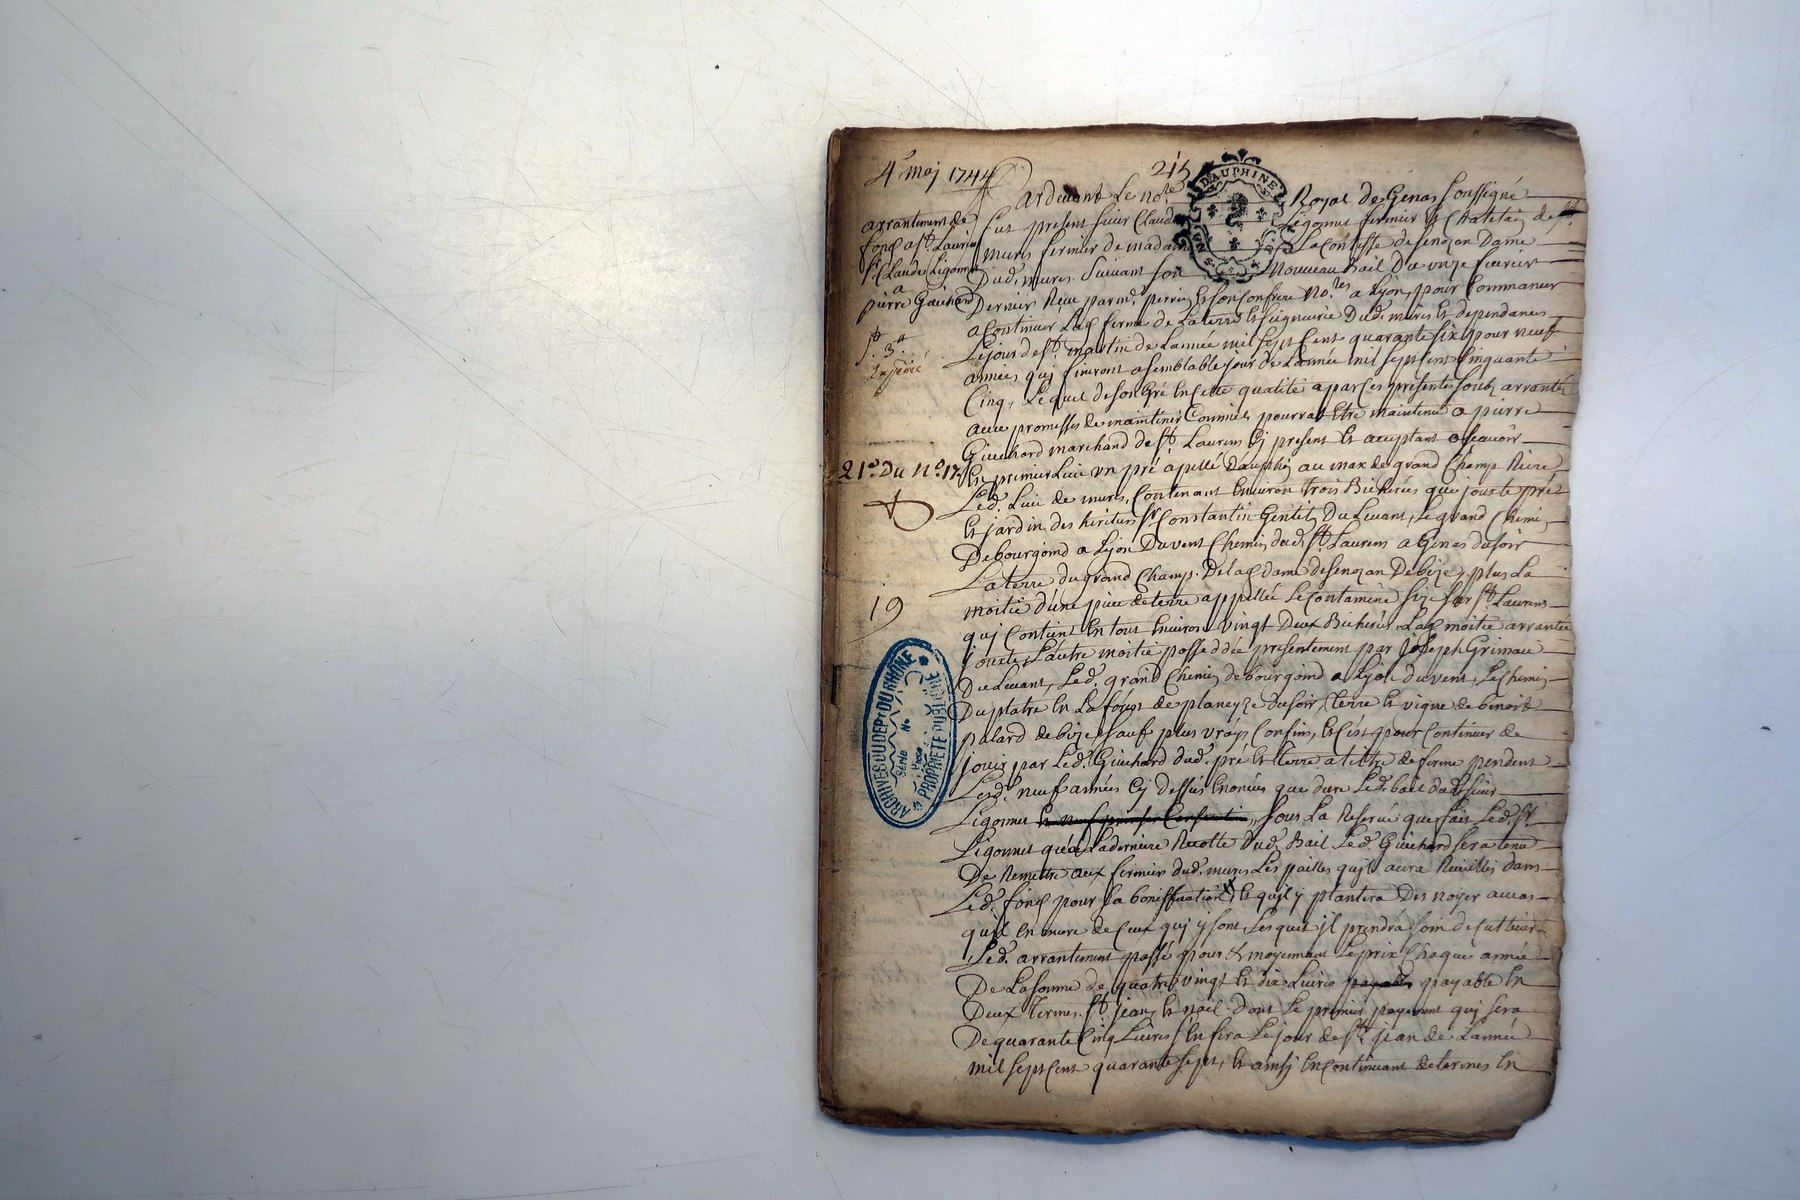 4e maj 1744
215
DAUPHINE
arrantement de
fond a st Laurin
sr Claude Ligonnet
a
pierre Guichard
st
s. 3tt
Injeoié
21e Du No. 17
19
ARCHIVES DU DEPt DU RHÔNE
Série No
PROPRIÉTÉ PUBLIQUE
Pardevant Le nore Royal de Genas soussigné
fut present sieur Claude Ligonnet fermier et Chatelain de
murs fermier de madame La Contesse de senozan Dame
Dud. murs. Suivant son Nouveau Bail Du unze feuvrier
Dernier Reçu par me. perrin et son Confrere Nores a Lyon, pour Commancer
a Continuer Lad ferme de La terre et seigneurie Dud. murs et dependances
Le jour de st. martin de Lannée mil sept Cent quarante six pour neuf
années, quj finiront a semblable jour de Lannée mil sept cent Cinquante
Cinq, Lequel de son Gré En Cette qualité a par Ces presentes soubz arranté
avec promesses de maintenir Comme il pourra Etre maintenu a pierre
Guichard marchand de st Laurens Cy present et acceptant a scavoir
En premier Lieu un pré apellé Dauphin au max de grand Champ Riere
Led. Lieu de murs, Contenant Environ trois Bicherées que jouxte pré
et jardin des heritiers sr Constantin Gentet Du Levant, Le grand Chemin
De bourgoind a Lyon Du vent Chemin dud st. Laurens a Genas du soir
La terre du grand Champ. De lad dame de senozan De bize, plus La
moitié d'une piece de terre appellée Le Contamene size sur st Laurens
quj Contient En tout Environ vingt Deux Bicherées Lad moitié arrantée
jouxte, L'autre moitié posseddée presentement par Joseph Grimau
Du Levant, Led. grand Chemin de bourgoind a Lyon du vent, Le Chemin
Du platre En La forest de planeyze du soir, terre et vigne de benoit
palard de bize, sauf plus vrays Confins, et C'est pour Continuer de
jouir par Led. Guichard dud. pré et terre a titre de ferme pendent
Lesd. neuf années Cy dessus Enoncées que dure Led. bail dud sieur
Ligonnet sous La Reserve que fait Led. sr.
Ligonnet qu'a La derniere Recolte Dud. Bail Led. Guichard sera tenu
De Remettre aux fermier dud. murs Les pailles qu'il aura Recueillis dans
Led. fond pour La boniffication et qu'il y plantera Des noyer au cas
qu'il En mure de Ceux quj y sont, Lesquels jl prendra soin de Cultiver
Led. arrantement passé pour & moyennant Le prix Chaque année
De La somme de quatre vingt et dix Livres payable payable En
Deux termes. st jean, et noël. dont Le premier payement quj sera
De quarante Cinq Livres s'En fera Le jour de st. jean de Lannée
mil sept Cent quarante sept, et ainsy En Continuant de termes En